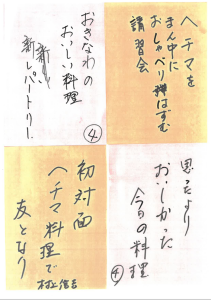 ヘチマを
まん中に
おしゃべり弾はずむ
講習会
おきなわの
おいしい料理
新しレパートリー
④
思ったより
おいしかった
今日の料理
④
初対面
ヘチマ料理で
友となり